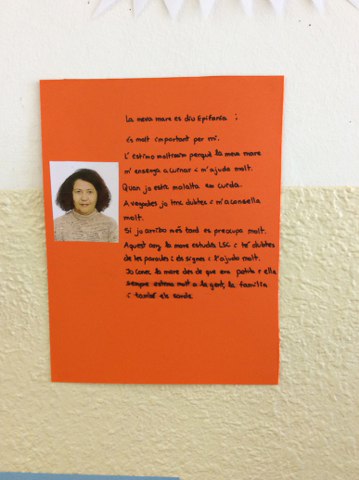 La meva mare es diu Epifania i
és molt important per mi.
L'estimo moltíssim perquè la meva mare
m'ensenya a cuinar i m'ajuda molt.
Quan jo estic malalta em cuida.
A vegades jo tinc dubtes i m'aconsella
molt.
Si jo arribo més tard es preocupa molt.
Aquest any la mare estudia LSC i té dubtes
de les paraules i els signes i l'ajudo molt.
Jo conec la mare des de que era petita i ella
sempre estima molt a la gent, la família
i també els sords.